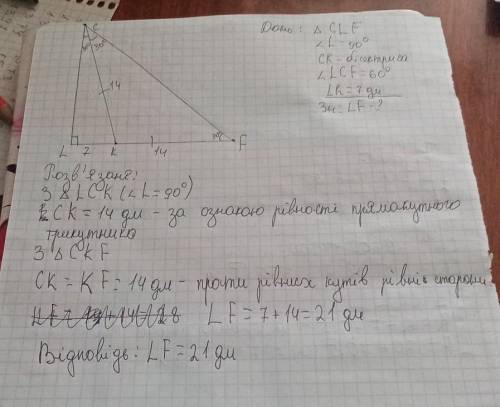 Дано: △ CLF
∠L=90°
CK - бісектриса
∠LCF=60°
LK=7 дм
Зн: LF-?
C
30°
14
L 7 K 14 F
30°
Розв'язаня:
З △ LCK (∠L=90°)
CK = 14 дм - за ознакою рівності прямокутного
трикутника
З △ CKF
CK = KF = 14 дм - проти рівних кутів рівні сторони
LF = 7+14 = 21 дм
Відповідь: LF = 21 дм